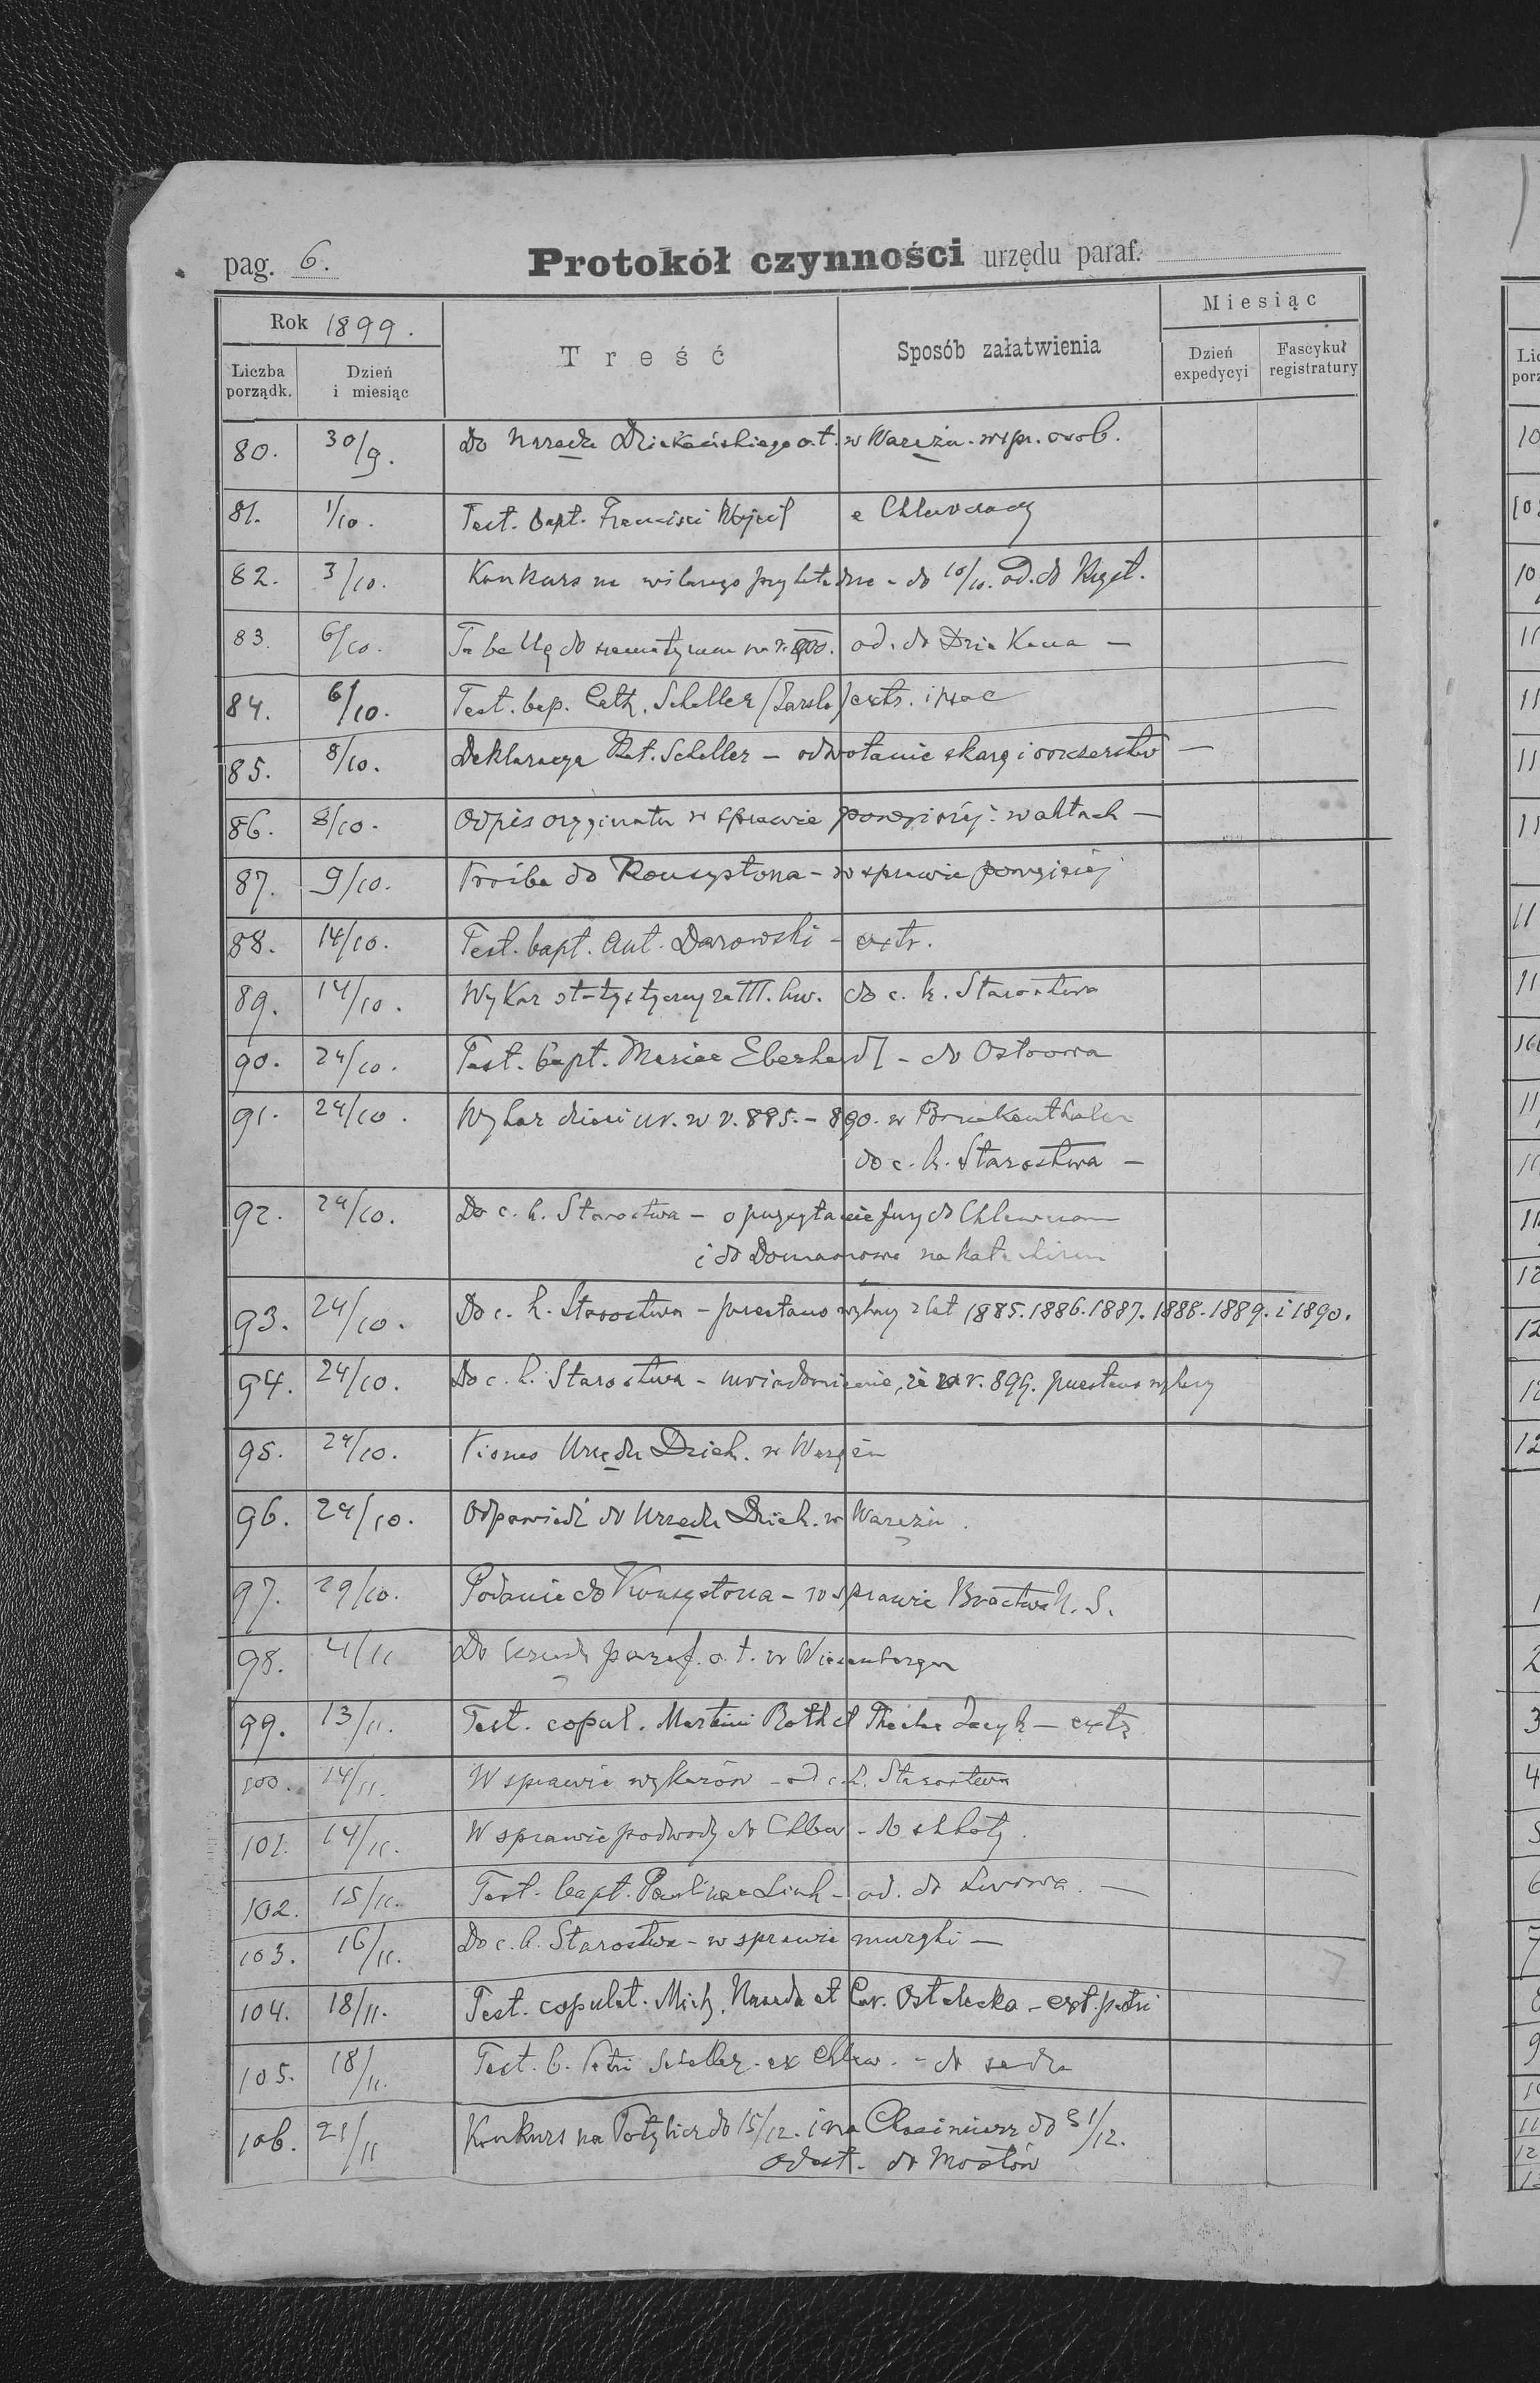 pag. 6. Protokół czynności urzędu paraf.
Rok 1899.
Treść
Sposób załatwienia
Miesiąc
Liczba porządk.
Dzień i miesiąc
Dzień expedycyi
Fascykuł registratury
80. 30/9. Do Urzędu Dziekańskiego o.ł. w Warężu - w spr. osob.
81. 1/10. Test. bapt. Francisci e Chlewczany
82. 3/10. Konkurs na - do 10/10. od. do
83. 6/10. Tabellę do szematyzmu na r. 900. od. do Dziekana —
84. 6/10. Test. bap. Cath. Scheller extr.
85. 8/10. Deklaracya Scheller - odwołanie skargi i oszczerstw —
86. 8/10. Odpis oryginału w sprawie powyższéj: w aktach —
87. 9/10. Prośba do Konsystorza - w sprawie powyższéj
88. 14/10. Test. bapt. Ant. Darowski - extr.
89. 14/10. Wykaz statystyczny za III. kw. do c. k. Starostwa
90. 24/10. Test. bapt. Mariae Eberhardt - do Ostrowa
91. 24/10. Wykaz dzieci ur. w r. 885. - 890. w Bruckenthalu
do c. k. Starostwa —
92. 24/10. Do c. k. Starostwa - o przysyłanie fury do
i do Domaszowa na
93. 24/10. Do c. k. Starostwa - przesłano wykazy z lat 1885. 1886. 1887. 1888. 1889. i 1890.
94. 24/10. Do c. k. Starostwa - uwiadomienie, że za r. 899. przesłano wykazy
95. 24/10. Pismo Urzędu Dziek. w Warężu
96. 24/10. Odpowiedź do Urzędu Dziek. w Warężu.
97. 29/10. Podanie do Konsystorza - w sprawie Bractwa N. S.
98. 4/11 Do Urzędu paraf. o. ł. w Wiesenbergu
99. 13/11. Test. copul. Martini Roth et Theclae Jacyk - extr.
100. 14/11. W sprawie wykazów - od c. k. Starostwa
101. 14/11. W sprawie podwody do Chlew - do szkoły.
102. 15/11. Test. bapt. Paulinae Link - od. do Lwowa. —
103. 16/11. Do c. k. Starostwa - w sprawie —
104. 18/11. Test. copulat. Mich. et
105. 18/11. Test. b. Petri Scheller - ex Chlew. - do sądu
106. 21/11 Konkurs na Potylicz do 15/12. i na do 31/12.
odesł. do Mostów